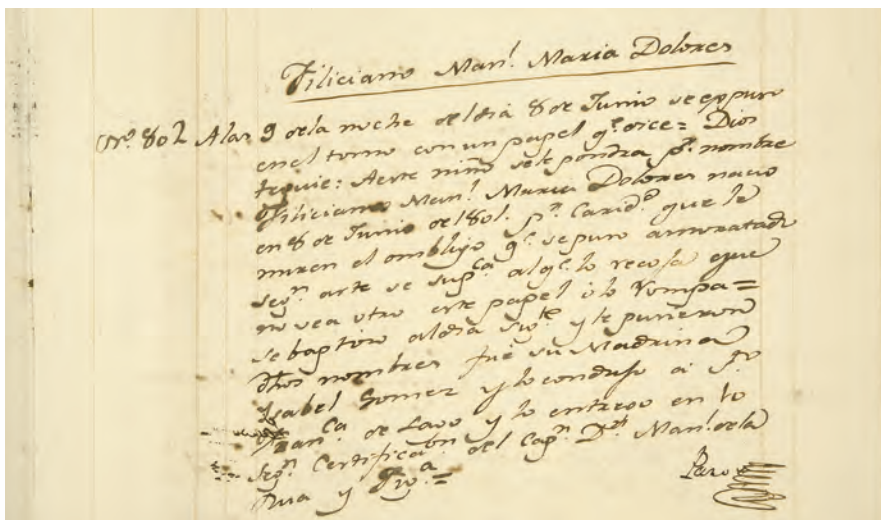 Filiciano Man.l Maria Dolores
No. 802 A las 9 de la noche del dia 8 de Junio se eppuso
en el torno con un papel q.e dice= Dios
te guie: A este niño se le pondra p.r nombre
Filiciano Man.l Maria Dolores nacio
en 8 de Junio de 1801. p.r Carid.d que le
miren el ombligo q.e se puso amoratado
seg.n arte se sup.ca al q.e lo recoja que
no vea otro este papel ó lo Rompa=
se baptizo al dia sig.te y le pusieron
dhos nombres fue su Madrina
Isabel Gomez y lo condujo a
Fran.ca de Lavo y lo entrego en lo
seg.n Certificac.on del Cap.n D.n Man.l de la
y